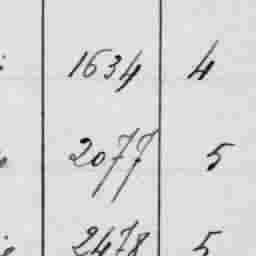 1634 4
2077 5
2478 5